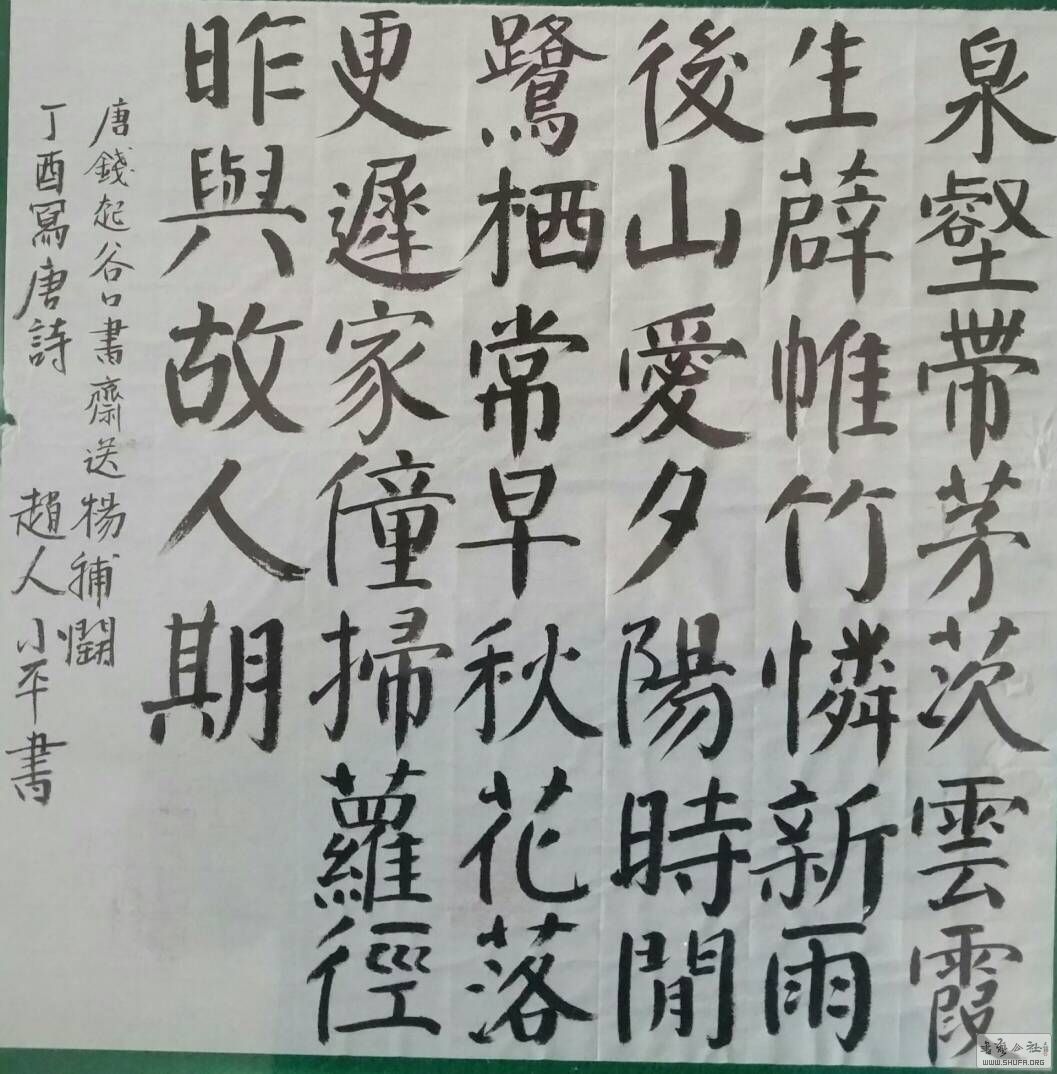 泉壑帶茅茨雲霞
生薜帷竹憐新雨
後山愛夕陽時閒
鷺栖常早秋花落
更遲家僮掃蘿徑
昨與故人期
唐錢起谷口書齋送楊補闕
丁酉寫唐詩 趙人小平書
書藝公社
WWW.SHUFA.ORG